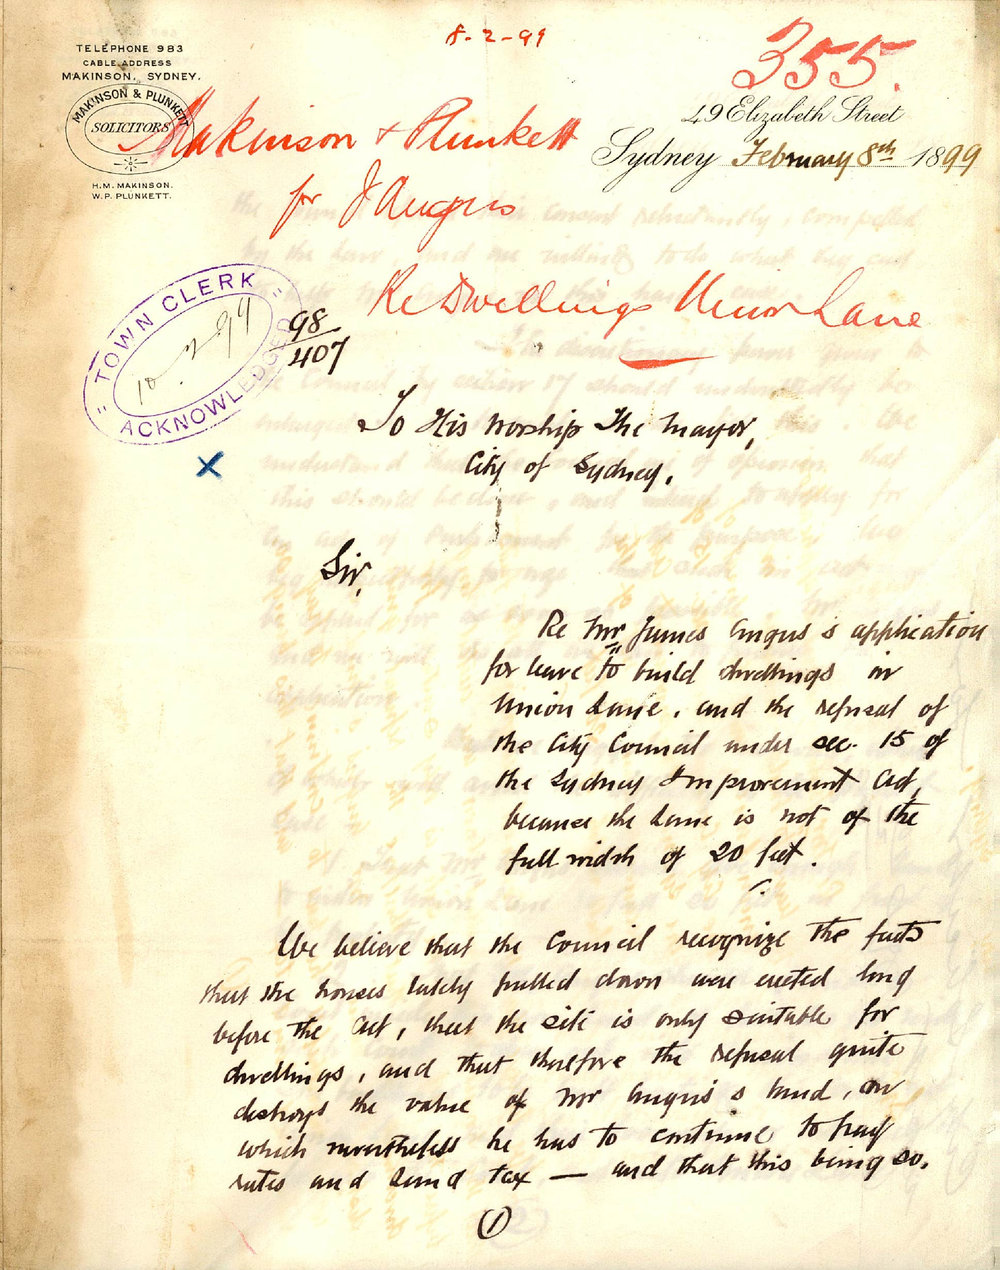 8-2-99
355.
TELEPHONE 983
CABLE ADDRESS
MAKINSON, SYDNEY.
MAKINSON & PLUNKETT
SOLICITORS
H.M. MAKINSON.
W.P. PLUNKETT.
49 Elizabeth Street
Sydney February 8th 1899
Makinson & Plunkett
for J Angus
Re Dwellings Union Lane
TOWN CLERK
10-2-99
ACKNOWLEDGED
98
407
To His Worship The Mayor,
City of Sydney.
Sir,
Re Mr James Angus's application
for leave to build dwellings in
Union Lane, and the refusal of
the City Council under sec. 15 of
the Sydney Improvement Act,
because the Lane is not of the
full width of 20 feet.
We believe that the Council recognize the facts
that the houses lately pulled down were erected long
before the Act, that the site is only suitable for
dwellings, and that therefore the refusal quite
destroys the value of Mr Angus's land, on
which nevertheless he has to continue to pay
rates and Land Tax — and that this being so,
(1)